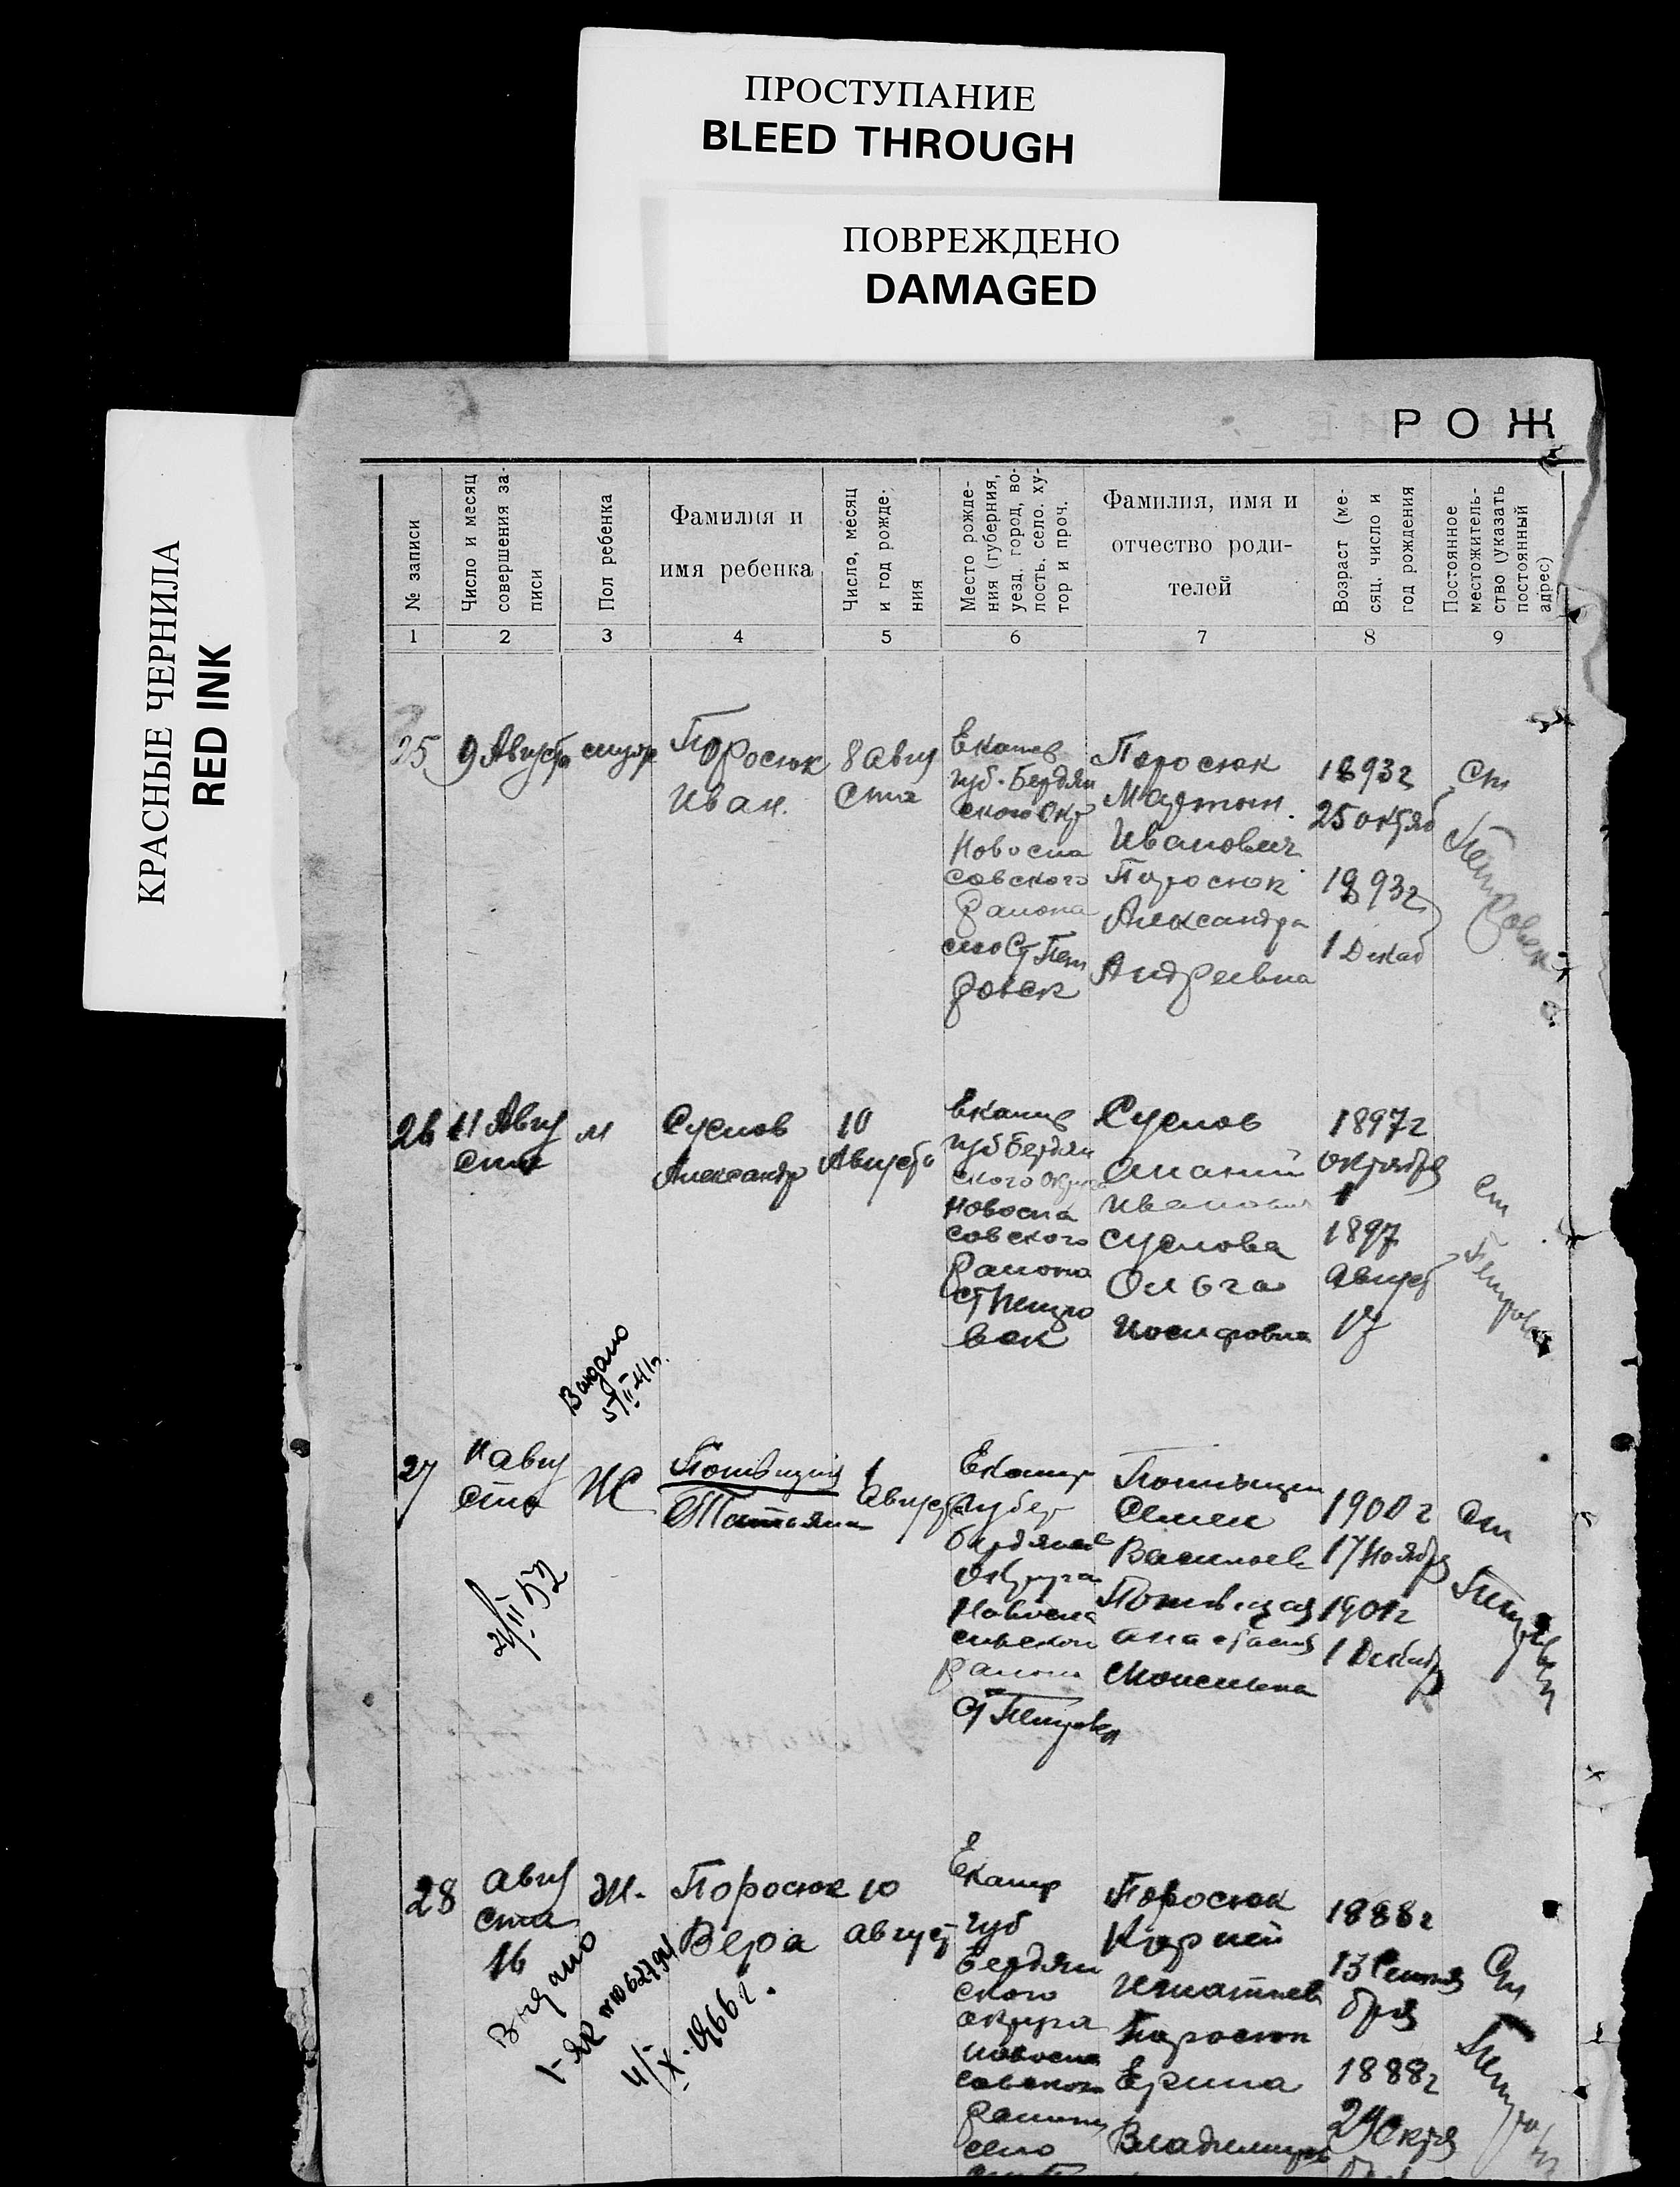 ПРОСТУПАНИЕ
BLEED THROUGH
ПОВРЕЖДЕНО
DAMAGED
КРАСНЫЕ ЧЕРНИЛА
RED INK
РОЖ
№ записи
Число и месяц
совершения за-
писи
Пол ребенка
Фамилия и
имя ребенка
Число, месяц
и год рожде-
ния
Место рожде-
ния (губерния,
уезд, город, во-
лость, село, ху-
тор и проч.
Фамилия, имя и
отчество роди-
телей
Возраст (ме-
сяц, число и
год рождения
Постоянное
местожитель-
ство (указать
постоянный
адрес)
1 2 3 4 5 6 7 8 9
25
9 Августа
Поросюк
Иван.
8 авгу
ста
Екатер
губ. Бердян
ского окр
Новоспа
совского
района
село Ст Пет
ровск
Поросюк
Мартын
Иванович
Поросюк
Александра
Андреевна
1893г
25 октяб
1893г
1 Декаб
Ст
26
11 Авгу
ста
м
Суслов
Александр
10
Августа
Екатер
губ Бердян
ского округа
Новоспа
совского
района
Ст Петро
век
Суслов
Ананий
Иванович
Суслова
Ольга
Иосифовна
1897г
октября
1
1897
август
17
Ст
Выдано
5/II 41г.
27
11 авгу
ста
Ж
Татьяна
1
август
Екатер
губер
округа
района
Ст Петровка
Семен
Васильев
Анастасия
Моисеевна
1900г
17 Ноября
1901г
1 Декабр
Ст
2/II 52
28
авгу
ста
16
Ж.
Поросюк
Вера
10
август
Екатер
губ
Бердян
ского
округа
Новоспа
совского
района
село
Поросюк
Корней
Игнатьев
Поросюк
Ерина
Владимиров
1888г
13 Сентя
бря
1888г
29 Октя
Ст
Выдано
4/X. 1966г.